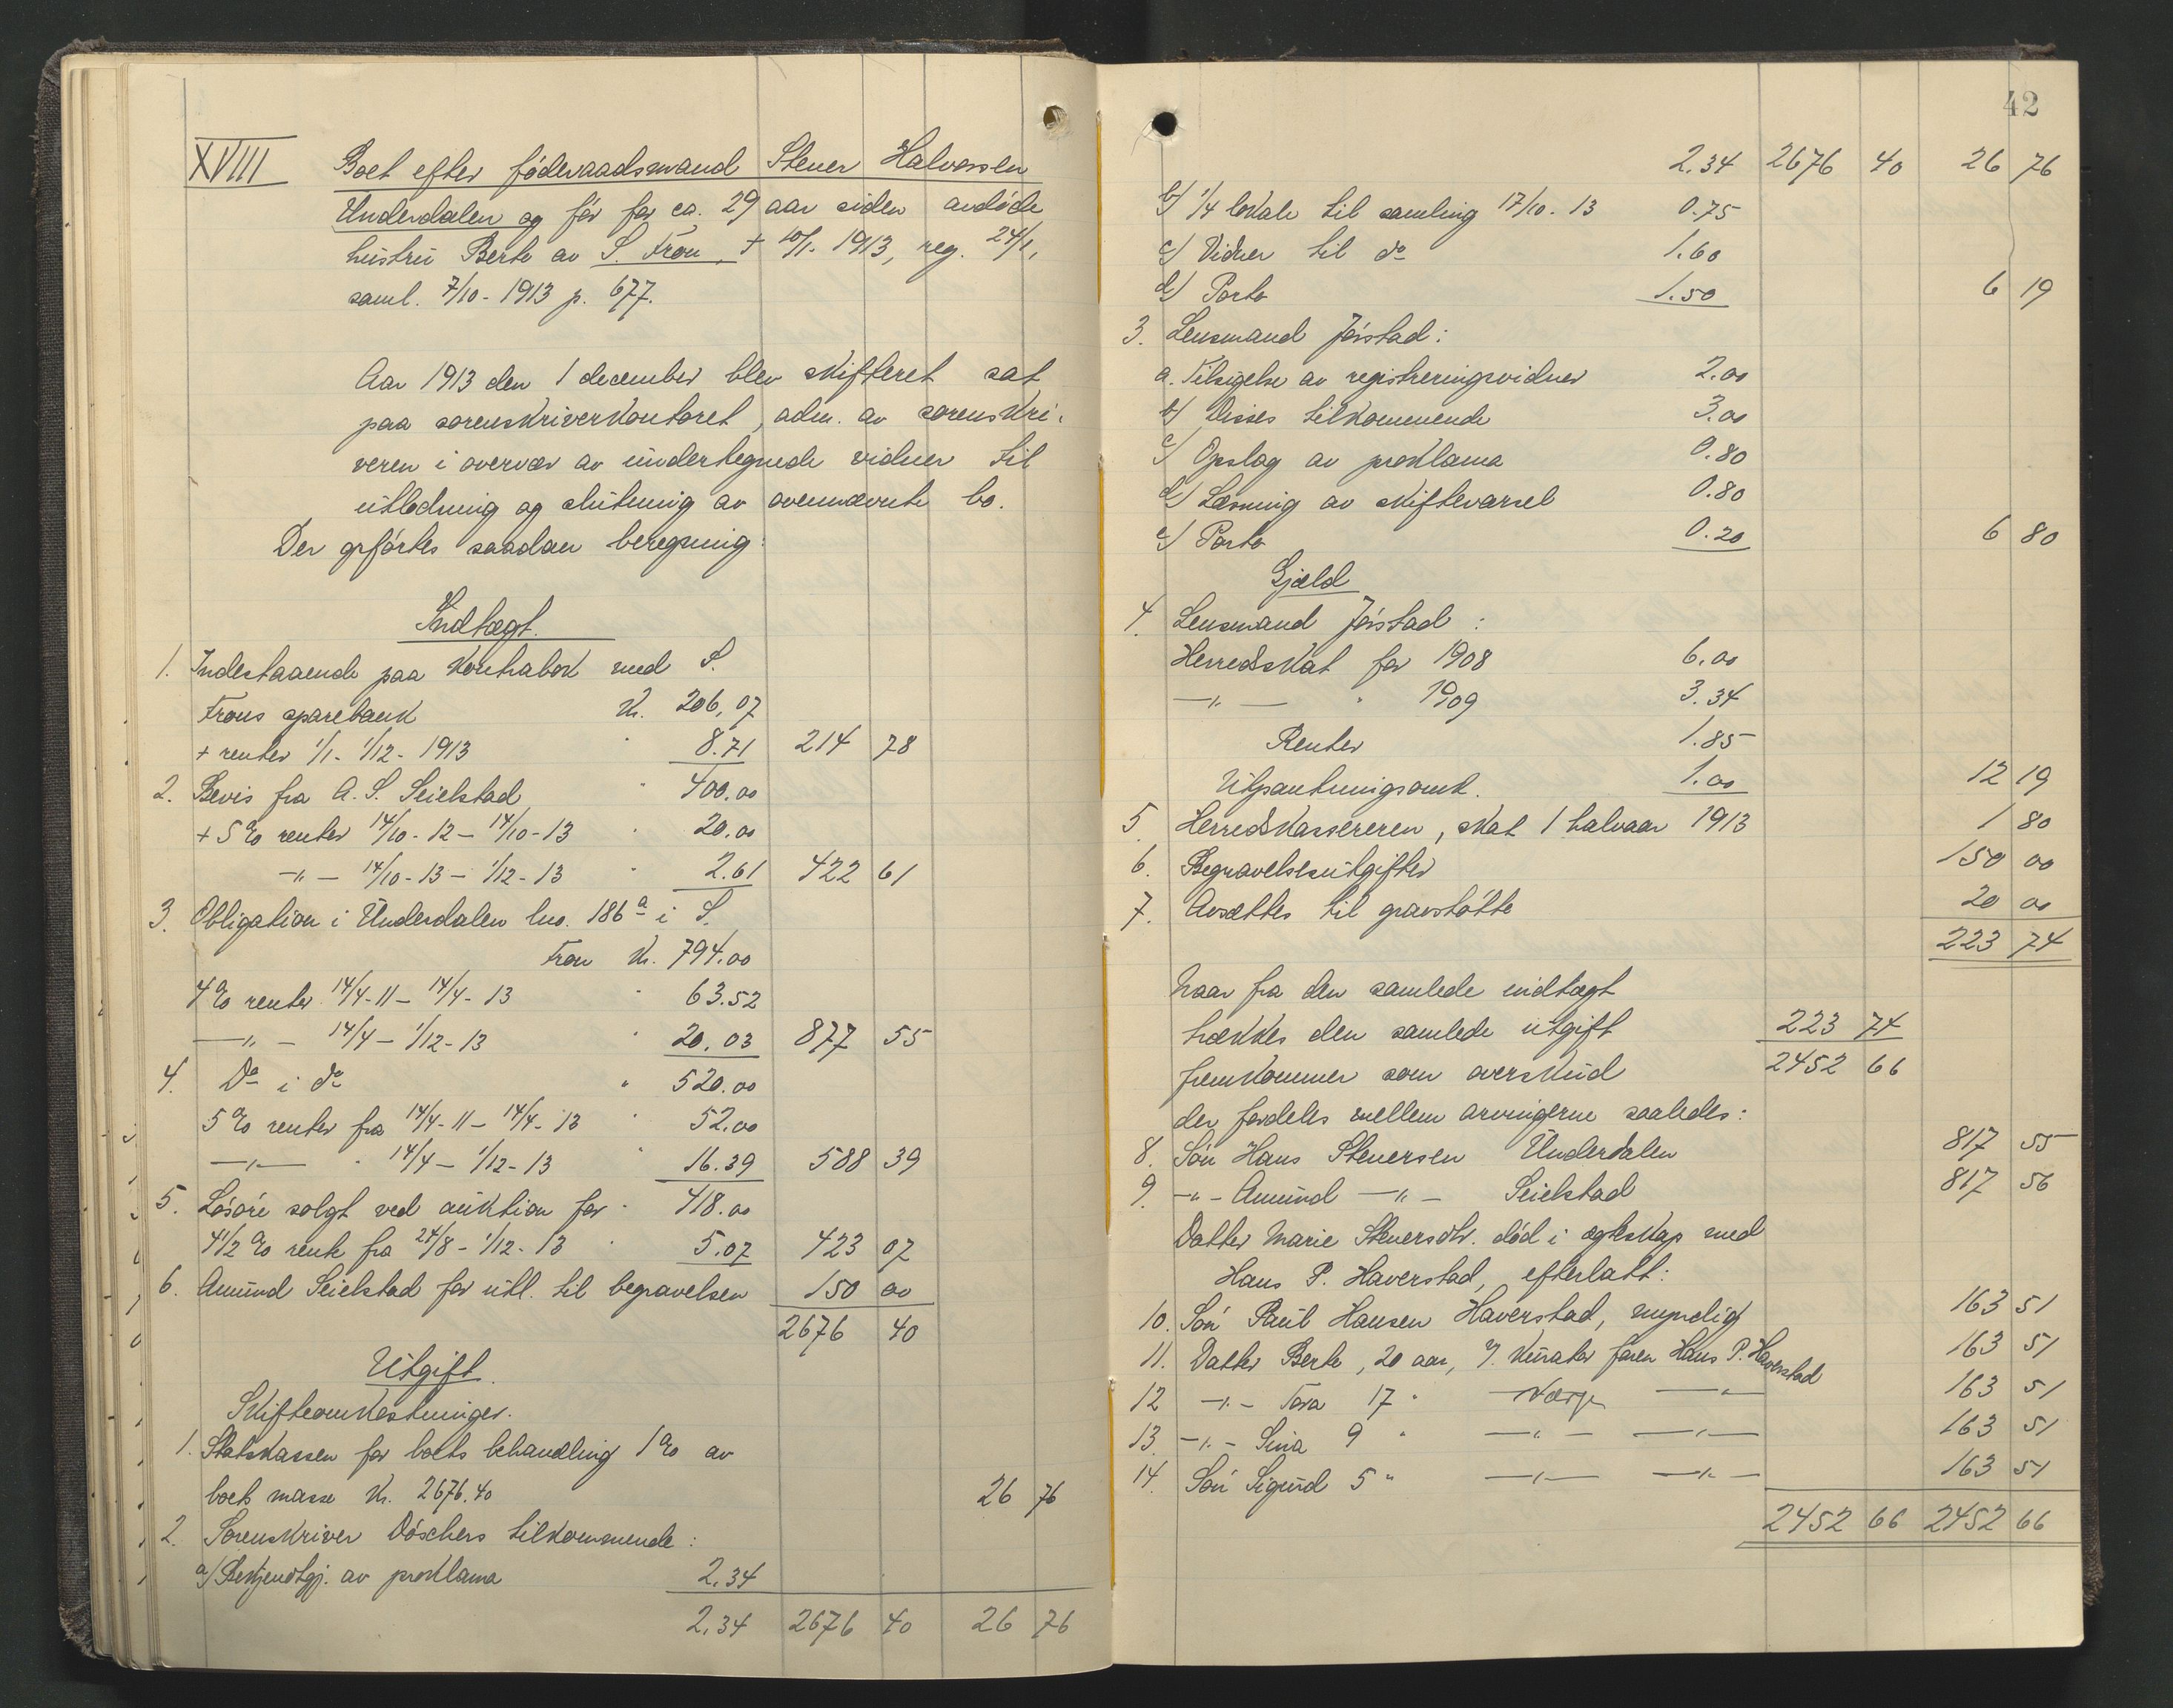 XVIII Boet efter föderaadsmand Stener Halvorsen
Underdalen og för for ca. 29 aar siden avdöde
hustru Berte av S. Fron, + 10/1. 1913, reg. 24/1,
saml. 7/10-1913 p. 677.
Aar 1913 den 1 december blev skifteret sat
paa sorenskriverkontoret, adm. av sorenskri-
veren i overvær av undertegnede vidner til
utlodning og slutning av ovennævnte bo.
Der opförtes saadan beregning:
Indtægt.
1. Indestaaende paa kontrabok med S.
Frons sparebank kr. 206,07
+ renter 1/1-1/12-1913 " 8.71 214 78
2. Bevis fra A. S. Seielstad " 400.00
+ 5 % renter 14/10-12 - 14/10-13 " 20.00
-"- 14/10-13 - 1/12-13 " 2.61 422 61
3. Obligation i Underdalen lno. 186a i S.
Fron kr. 794.00
4 % renter 14/4-11 - 14/4-13 " 63.52
-"- 14/4 - 1/12-13 " 20.03 877 55
4. Do i do " 520.00
5 % renter fra 14/4-11 - 14/4-13 " 52.00
-"- " 14/4 - 1/12-13 " 16.39 588 39
5. Lösöre solgt ved auktion for " 418.00
4 1/2 % rente fra 24/8 - 1/12-13 " 5.07 423 07
6. Amund Seielstad for utl. til begravelsen 150 00
2676 40
Utgift.
Skifteomkostninger.
1. Statskassen for boets behandling 1 % av
boets masse kr. 2676.40 26 76
2. Sorenskriver Döschers tilkommende:
a) Bekjendtgj. av proklama 2.34
2.34 2676 40 26 76
42
2.34 2676 40 26 76
b) 1/4 lokale til samling 17/10-13 0.75
c) Vidner til do 1.60
d) Porto 1.50 6 19
3. Lensmand Jöistad:
a. Tilsigelse av registreringsvidner 2.00
b) Disses tilkommende 3.00
c) Opslag av proklama 0.80
d) Læsning av skiftevarsel 0.80
e) Porto 0.20 6 80
Gjæld
4. Lensmand Jöistad:
Herredskat for 1908 6.00
-"- " 1909 3.34
Renter 1.85
Utpantningsomk. 1.00 12 19
5. Herredskassereren, skat 1 halvaar 1913 1 80
6. Begravelsesutgifter 150 00
7. Avsættes til gravstötte 20 00
223 74
Naar fra den samlede indtægt
trækkes den samlede utgift 223 74
fremkommer som overskud 2452 66
der fordeles mellem arvingerne saaledes:
8. Sön Hans Stenersen Underdalen 817 55
9. -"- Amund -"- Seielstad 817 56
Datter Marie Stenersdtr. död i egteskap med
Hans P. Haverstad, efterlatt:
10. Sön Paul Hansen Haverstad, myndig 163 51
11. Datter Berte, 20 aar, kurator faren Hans P. Haverstad 163 51
12 -"- Tora 17 " Værge -"- 163 51
13. -"- Sina 9 " -"- -"- 163 51
14. Sön Sigurd 5 " -"- -"- 163 51
2452 66 2452 66